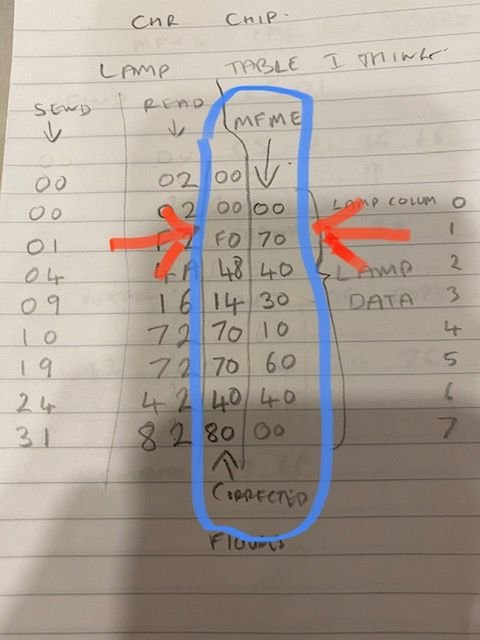 CHR CHIP.
LAMP TABLE I THINK
SEND READ MFME
00 02 00
00 02 00 00 LAMP COLUM 0
01 F0 70 1
04 48 40 LAMP 2
09 16 14 30 DATA 3
10 72 70 10 4
19 72 70 60 5
24 42 40 40 6
31 82 80 00 7
CORRECTED
FIGURES